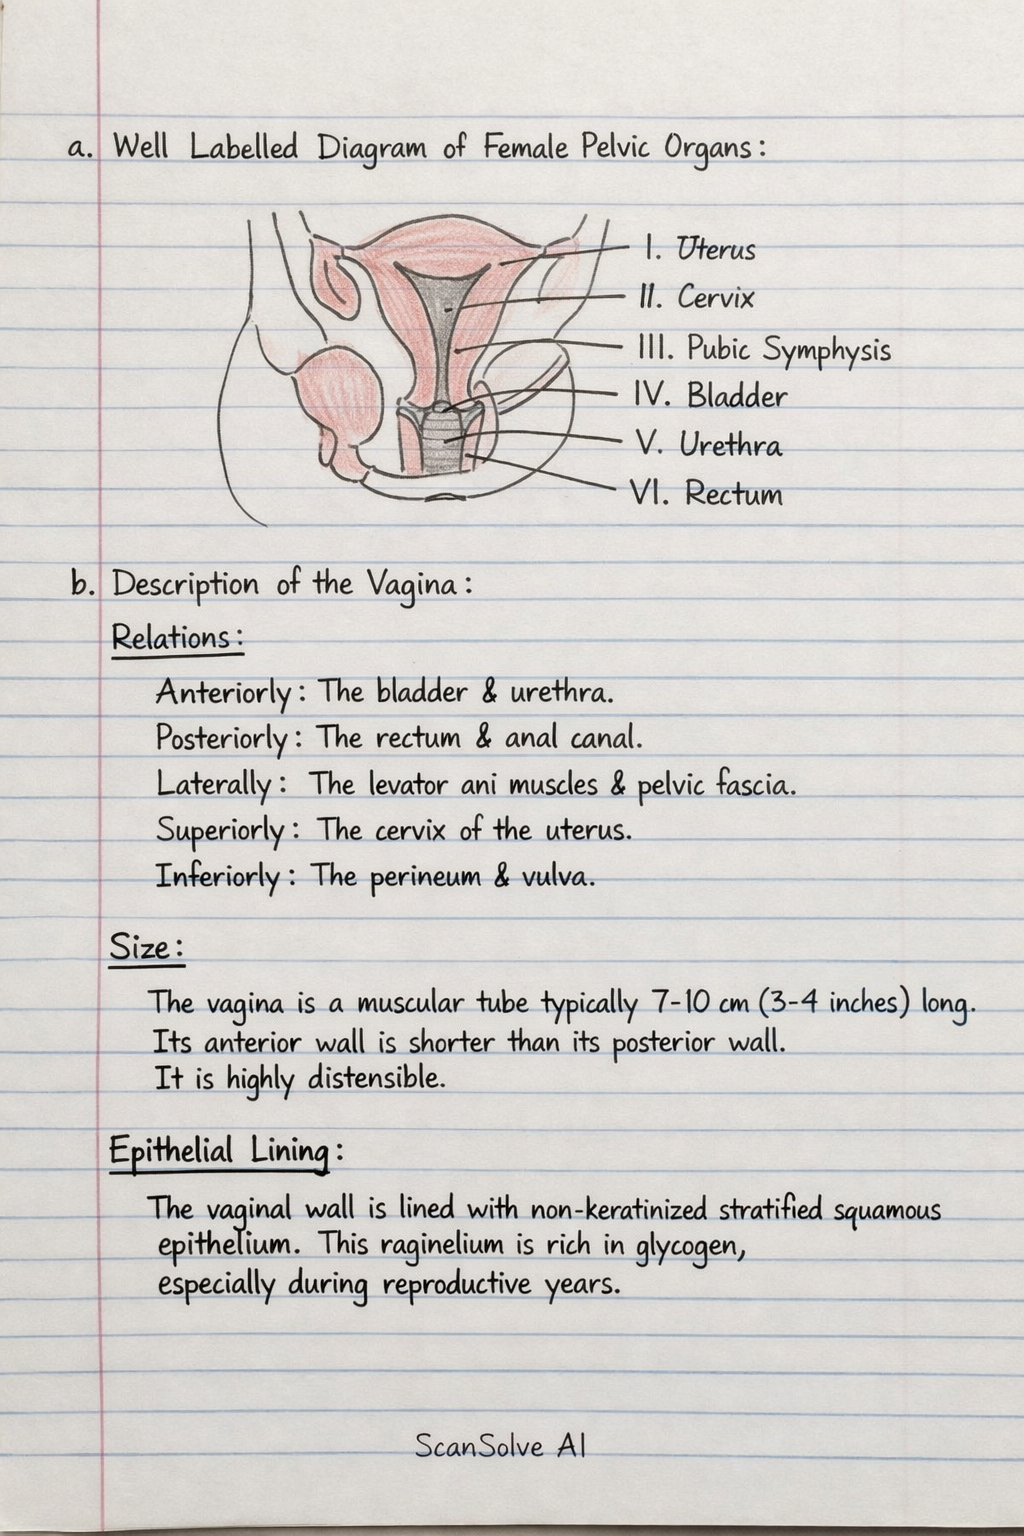 a. Well Labelled Diagram of Female Pelvic Organs:
I. Uterus
II. Cervix
III. Pubic Symphysis
IV. Bladder
V. Urethra
VI. Rectum
b. Description of the Vagina:
Relations:
Anteriorly: The bladder & urethra.
Posteriorly: The rectum & anal canal.
Laterally: The levator ani muscles & pelvic fascia.
Superiorly: The cervix of the uterus.
Inferiorly: The perineum & vulva.
Size:
The vagina is a muscular tube typically 7-10 cm (3-4 inches) long.
Its anterior wall is shorter than its posterior wall.
It is highly distensible.
Epithelial Lining:
The vaginal wall is lined with non-keratinized stratified squamous
epithelium. This raginelium is rich in glycogen,
especially during reproductive years.
ScanSolve AI